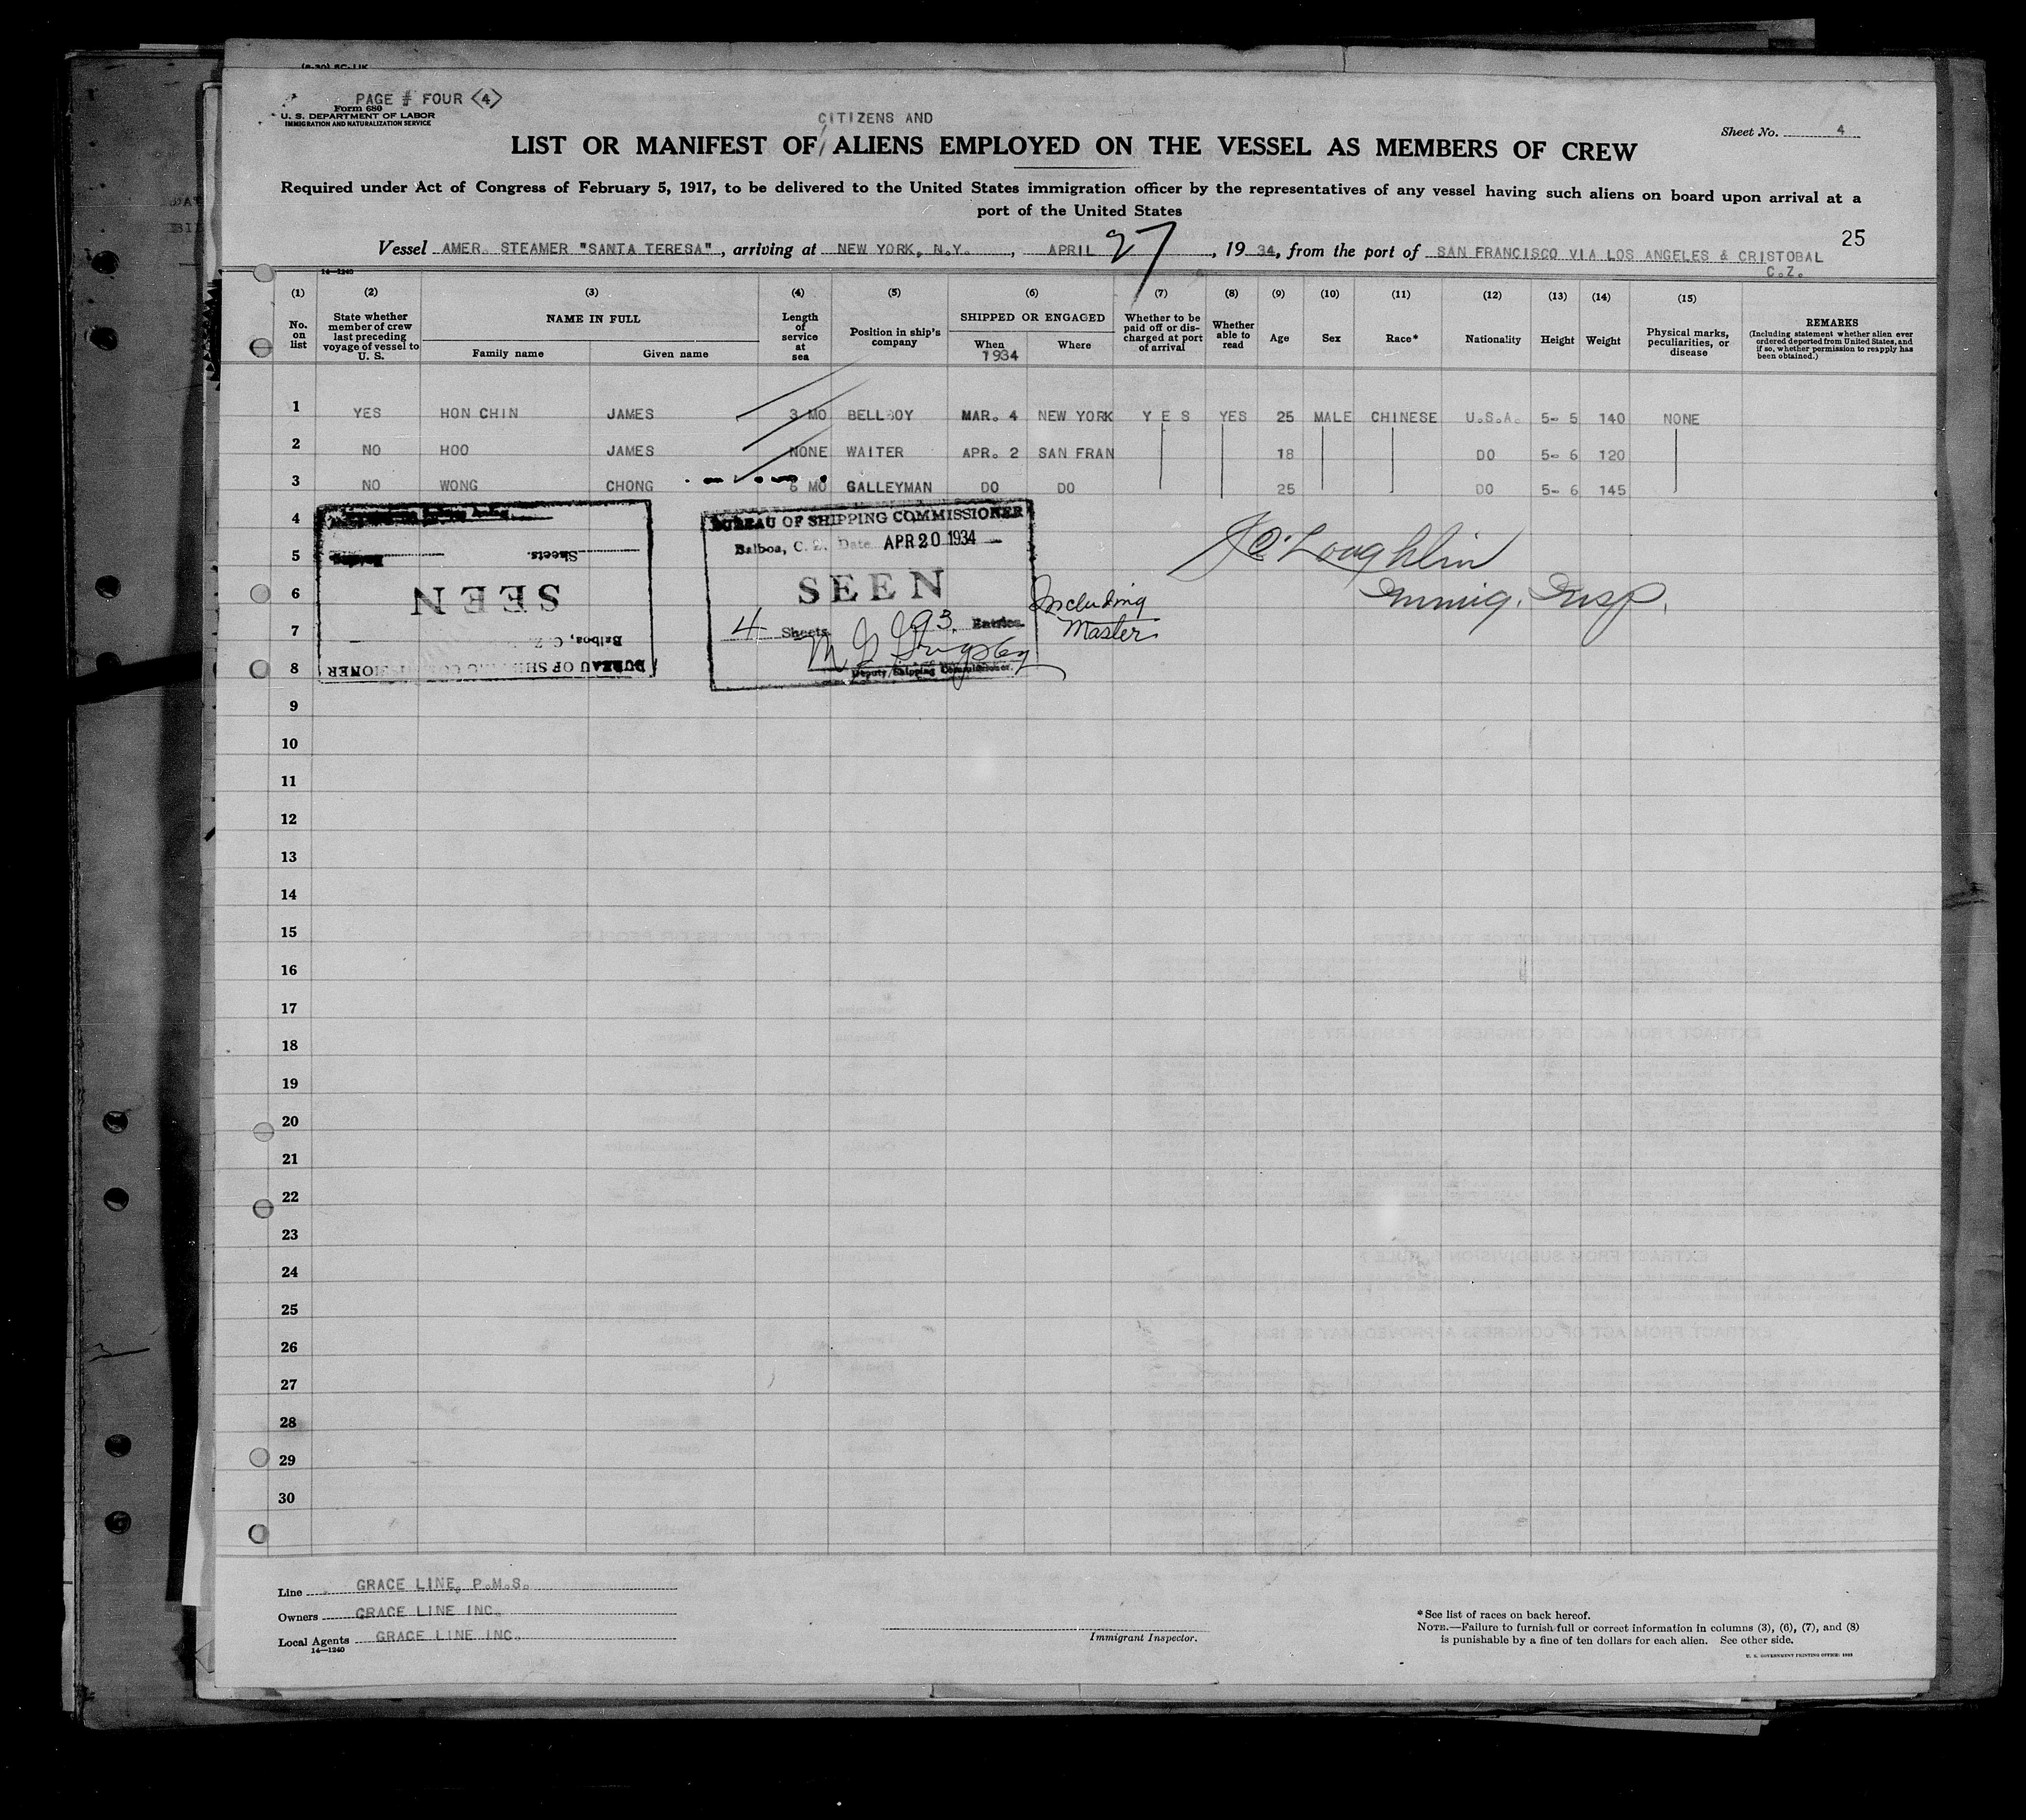 PAGE # FOUR <4>
Form 680
U. S. DEPARTMENT OF LABOR
IMMIGRATION AND NATURALIZATION SERVICE
Sheet No. 4
CITIZENS AND
LIST OR MANIFEST OF / ALIENS EMPLOYED ON THE VESSEL AS MEMBERS OF CREW
Required under Act of Congress of February 5, 1917, to be delivered to the United States immigration officer by the representatives of any vessel having such aliens on board upon arrival at a
port of the United States
25
Vessel AMER. STEAMER "SANTA TERESA", arriving at NEW YORK, N.Y., APRIL 27, 1934, from the port of SAN FRANCISCO VIA LOS ANGELES & CRISTOBAL
C.Z.
14—1240
(1) (2) (3) (4) (5) (6) (7) (8) (9) (10) (11) (12) (13) (14) (15)
No. on list
State whether member of crew last preceding voyage of vessel to U. S.
NAME IN FULL
Family name Given name
Length of service at sea
Position in ship's company
SHIPPED OR ENGAGED
When Where
1934
Whether to be paid off or discharged at port of arrival
Whether able to read
Age Sex Race* Nationality Height Weight
Physical marks, peculiarities, or disease
REMARKS
(Including statement whether alien ever ordered deported from United States, and if so, whether permission to reapply has been obtained.)
1 YES HON CHIN JAMES 3 MO BELLBOY MAR. 4 NEW YORK Y E S YES 25 MALE CHINESE U.S.A. 5- 5 140 NONE
2 NO HOO JAMES NONE WAITER APR. 2 SAN FRAN 18 DO 5- 6 120
3 NO WONG CHONG 6 MO GALLEYMAN DO DO 25 DO 5- 6 145
4
5
6
7
8
BUREAU OF SHIPPING COMMISSIONER
Balboa, C. Z.
SEEN
Sheets.
BUREAU OF SHIPPING COMMISSIONER
Balboa, C. Z. Date APR 20 1934
SEEN
4 Sheets 93 Entries.
Including
Master
Deputy Shipping Commissioner.
J O'Loughlin
Immig. Insp.
9
10
11
12
13
14
15
16
17
18
19
20
21
22
23
24
25
26
27
28
29
30
Line GRACE LINE, P.M.S.
Owners GRACE LINE INC.
Local Agents GRACE LINE INC.
14—1240
Immigrant Inspector.
*See list of races on back hereof.
NOTE.—Failure to furnish full or correct information in columns (3), (6), (7), and (8)
is punishable by a fine of ten dollars for each alien. See other side.